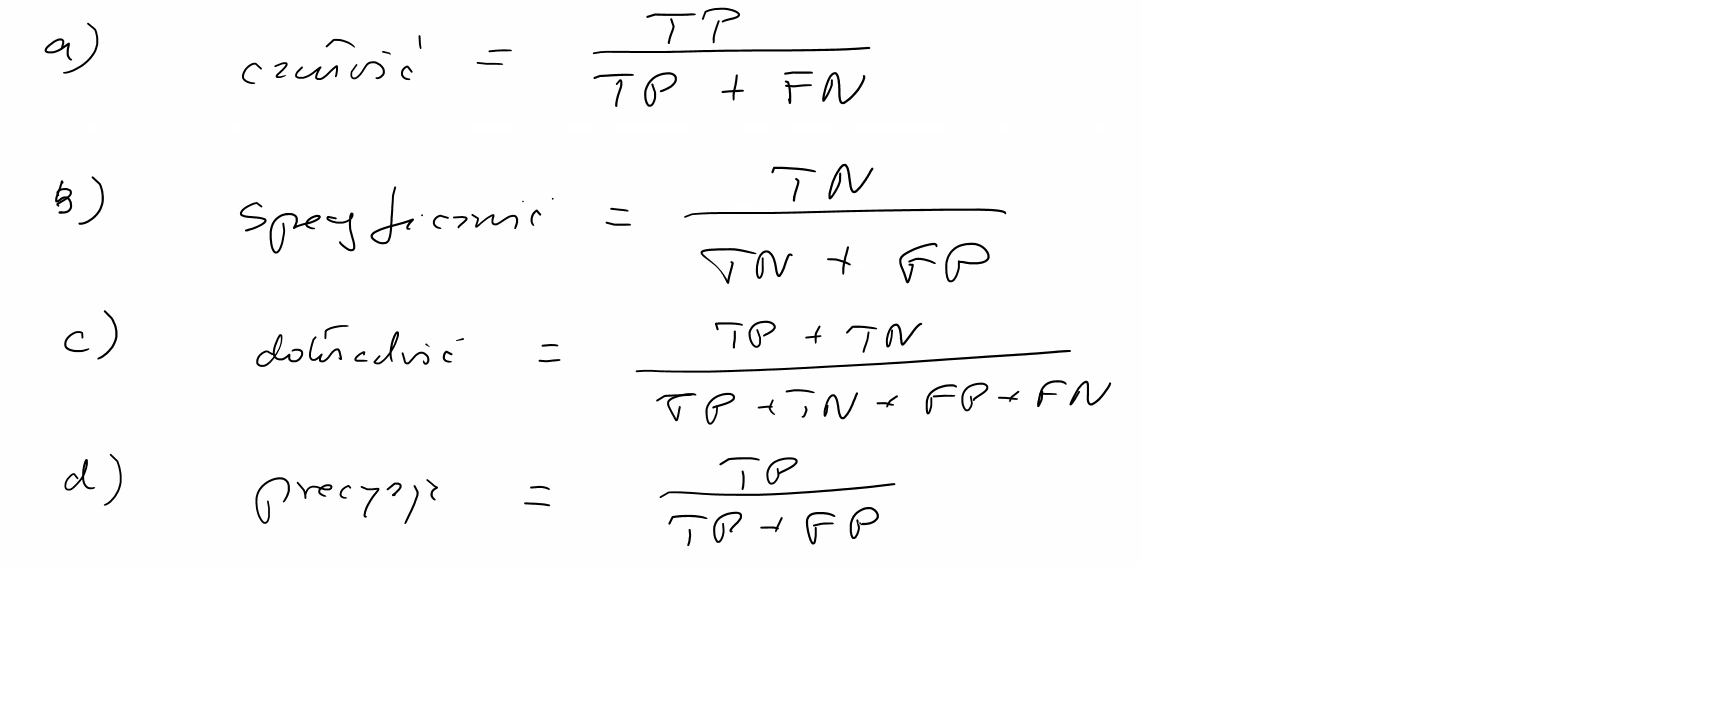 a) czułość = TP / TP + FN
b) specyficzność = TN / TN + FP
c) dokładność = TP + TN / TP + TN + FP + FN
d) precyzja = TP / TP + FP